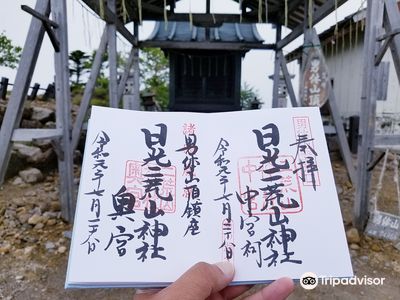 奉拝
日光二荒山神社
中宮祠
令和元年七月二十八日
男体山頂鎮座
日光二荒山神社
奥宮
令和元年七月二十八日
Tripadvisor